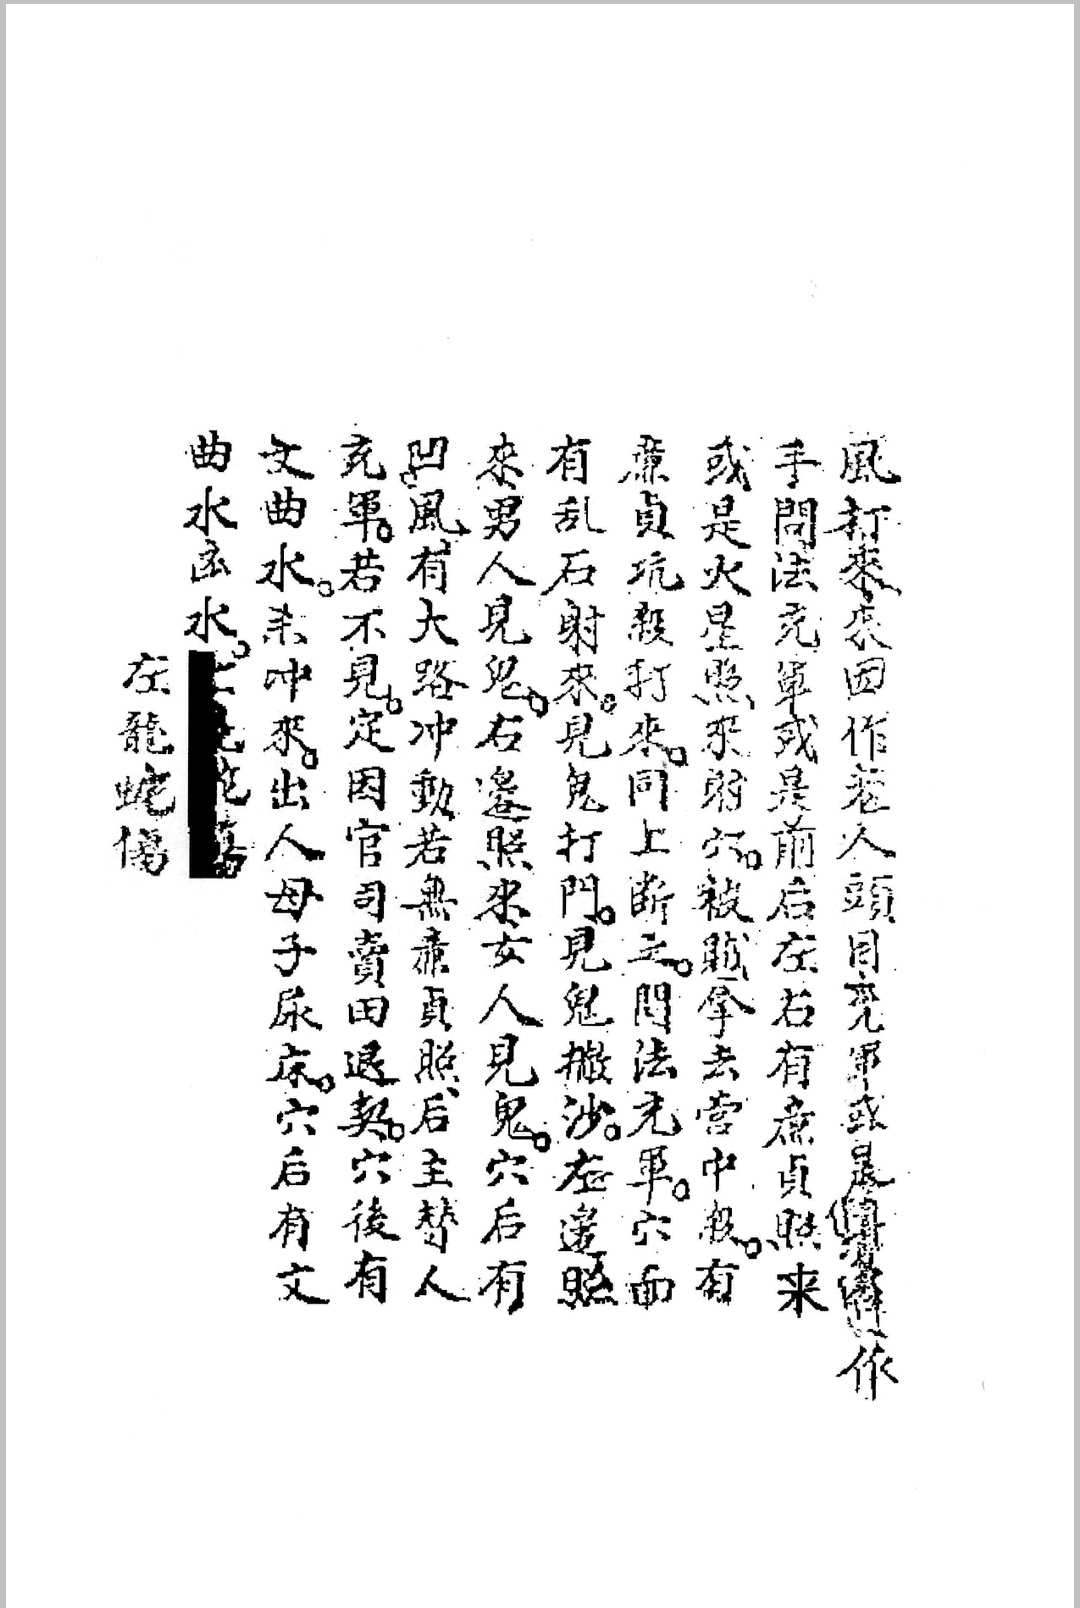 風打來衰因作老人頭目充軍或是作
手問法充軍或是前后左右有廉貞照来
或是火星照來射穴。被賊拿去营中殺。有
廉貞坑殺打來。同上断之。問法充軍。穴面
有乱石射來。見鬼打門。見鬼撒沙。左邊照
來男人見鬼。右邊照來女人見鬼。穴后有
凹風有大路冲動若無廉貞照后主替人
充軍。若不見。定因官司賣田退契。穴後有
文曲水。未冲來。出人母子尿床。穴后有文
曲水凶水。
左龍蛇傷